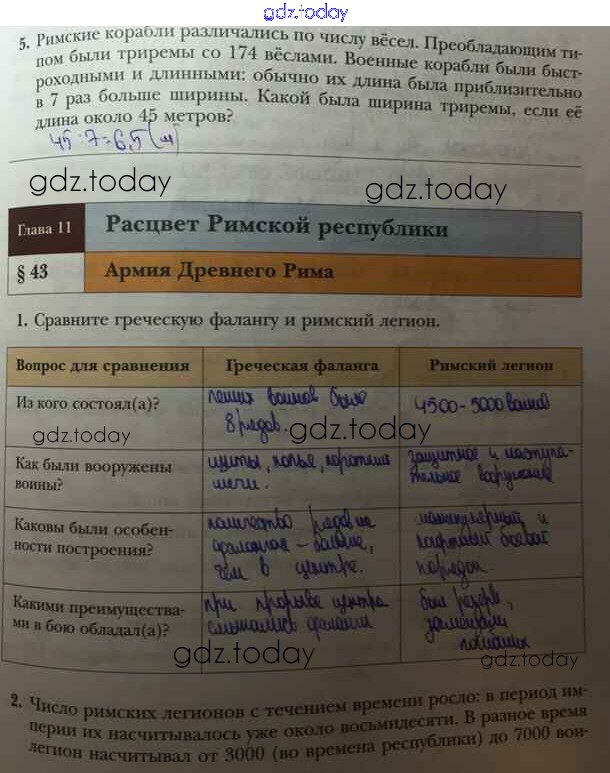 gdz.today
5. Римские корабли различались по числу вёсел. Преобладающим ти-
пом были триремы со 174 вёслами. Военные корабли были быст-
роходными и длинными: обычно их длина была приблизительно
в 7 раз больше ширины. Какой была ширина триремы, если её
длина около 45 метров?
45:7=6,5(м)
gdz.today
gdz.today
Глава 11
Расцвет Римской республики
§ 43
Армия Древнего Рима
1. Сравните греческую фалангу и римский легион.
Вопрос для сравнения
Греческая фаланга
Римский легион
Из кого состоял(а)?
пеших воинов было
8 рядов.
4500-5000 воинов
gdz.today
gdz.today
Как были вооружены
воины?
щиты, копья, короткие
мечи.
защитное и наступа-
тельное вооружение
Каковы были особен-
ности построения?
количество рядов на
- больше,
чем в центре.
манипулярный и
боевой
порядок.
Какими преимущества-
ми в бою обладал(а)?
при прорыве центра
смыкались фланги
был резерв,
заменяли
погибших
gdz.today
gdz.today
2. Число римских легионов с течением времени росло: в период им-
перии их насчитывалось уже около восьмидесяти. В разное время
легион насчитывал от 3000 (во времена республики) до 7000 вои-